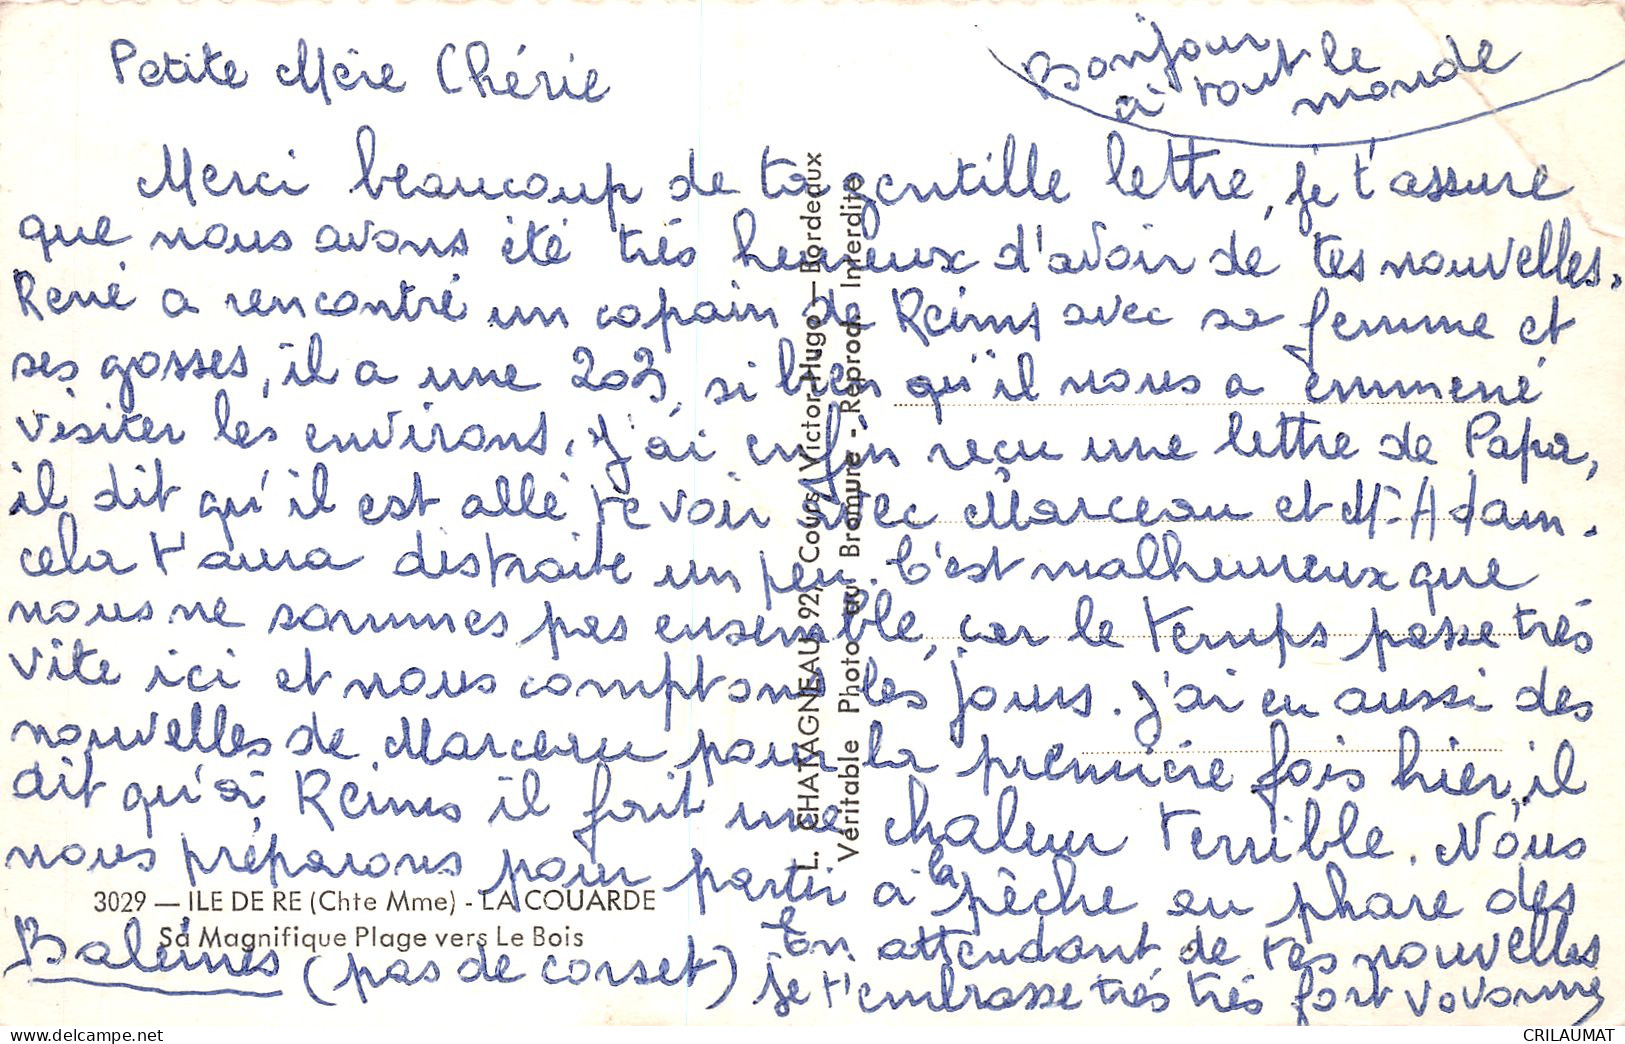 Petite Mère Chérie
Bonjour
à tout le
monde
Merci beaucoup de ta gentille lettre, je t'assure
que nous avons été très heureux d'avoir de tes nouvelles.
René a rencontré un copain de Reims avec sa femme et
ses gosses, il a une 203, si bien qu'il nous a emmené
visiter les environs. J'ai enfin reçu une lettre de Papa,
il dit qu'il est allé te voir avec Marceau et Mr Adam.
cela t'aura distraite un peu. C'est malheureux que
nous ne sommes pas ensemble, car le temps passe très
vite ici et nous comptons les jours. J'ai eu aussi des
nouvelles de Marceau pour la première fois hier, il
dit qu'à Reims il fait une chaleur terrible. Nous
nous préparons pour partir à la pêche au phare des
Baleines (pas de corset) En attendant de tes nouvelles
je t'embrasse très très fort
3029 — ILE DE RE (Chte Mme) - LA COUARDE
Sa Magnifique Plage vers Le Bois
L. CHATAGNEAU, 92, Cours Victor-Hugo — Bordeaux
Véritable Photo au Bromure - Reprod. Interdite
CRILAUMAT